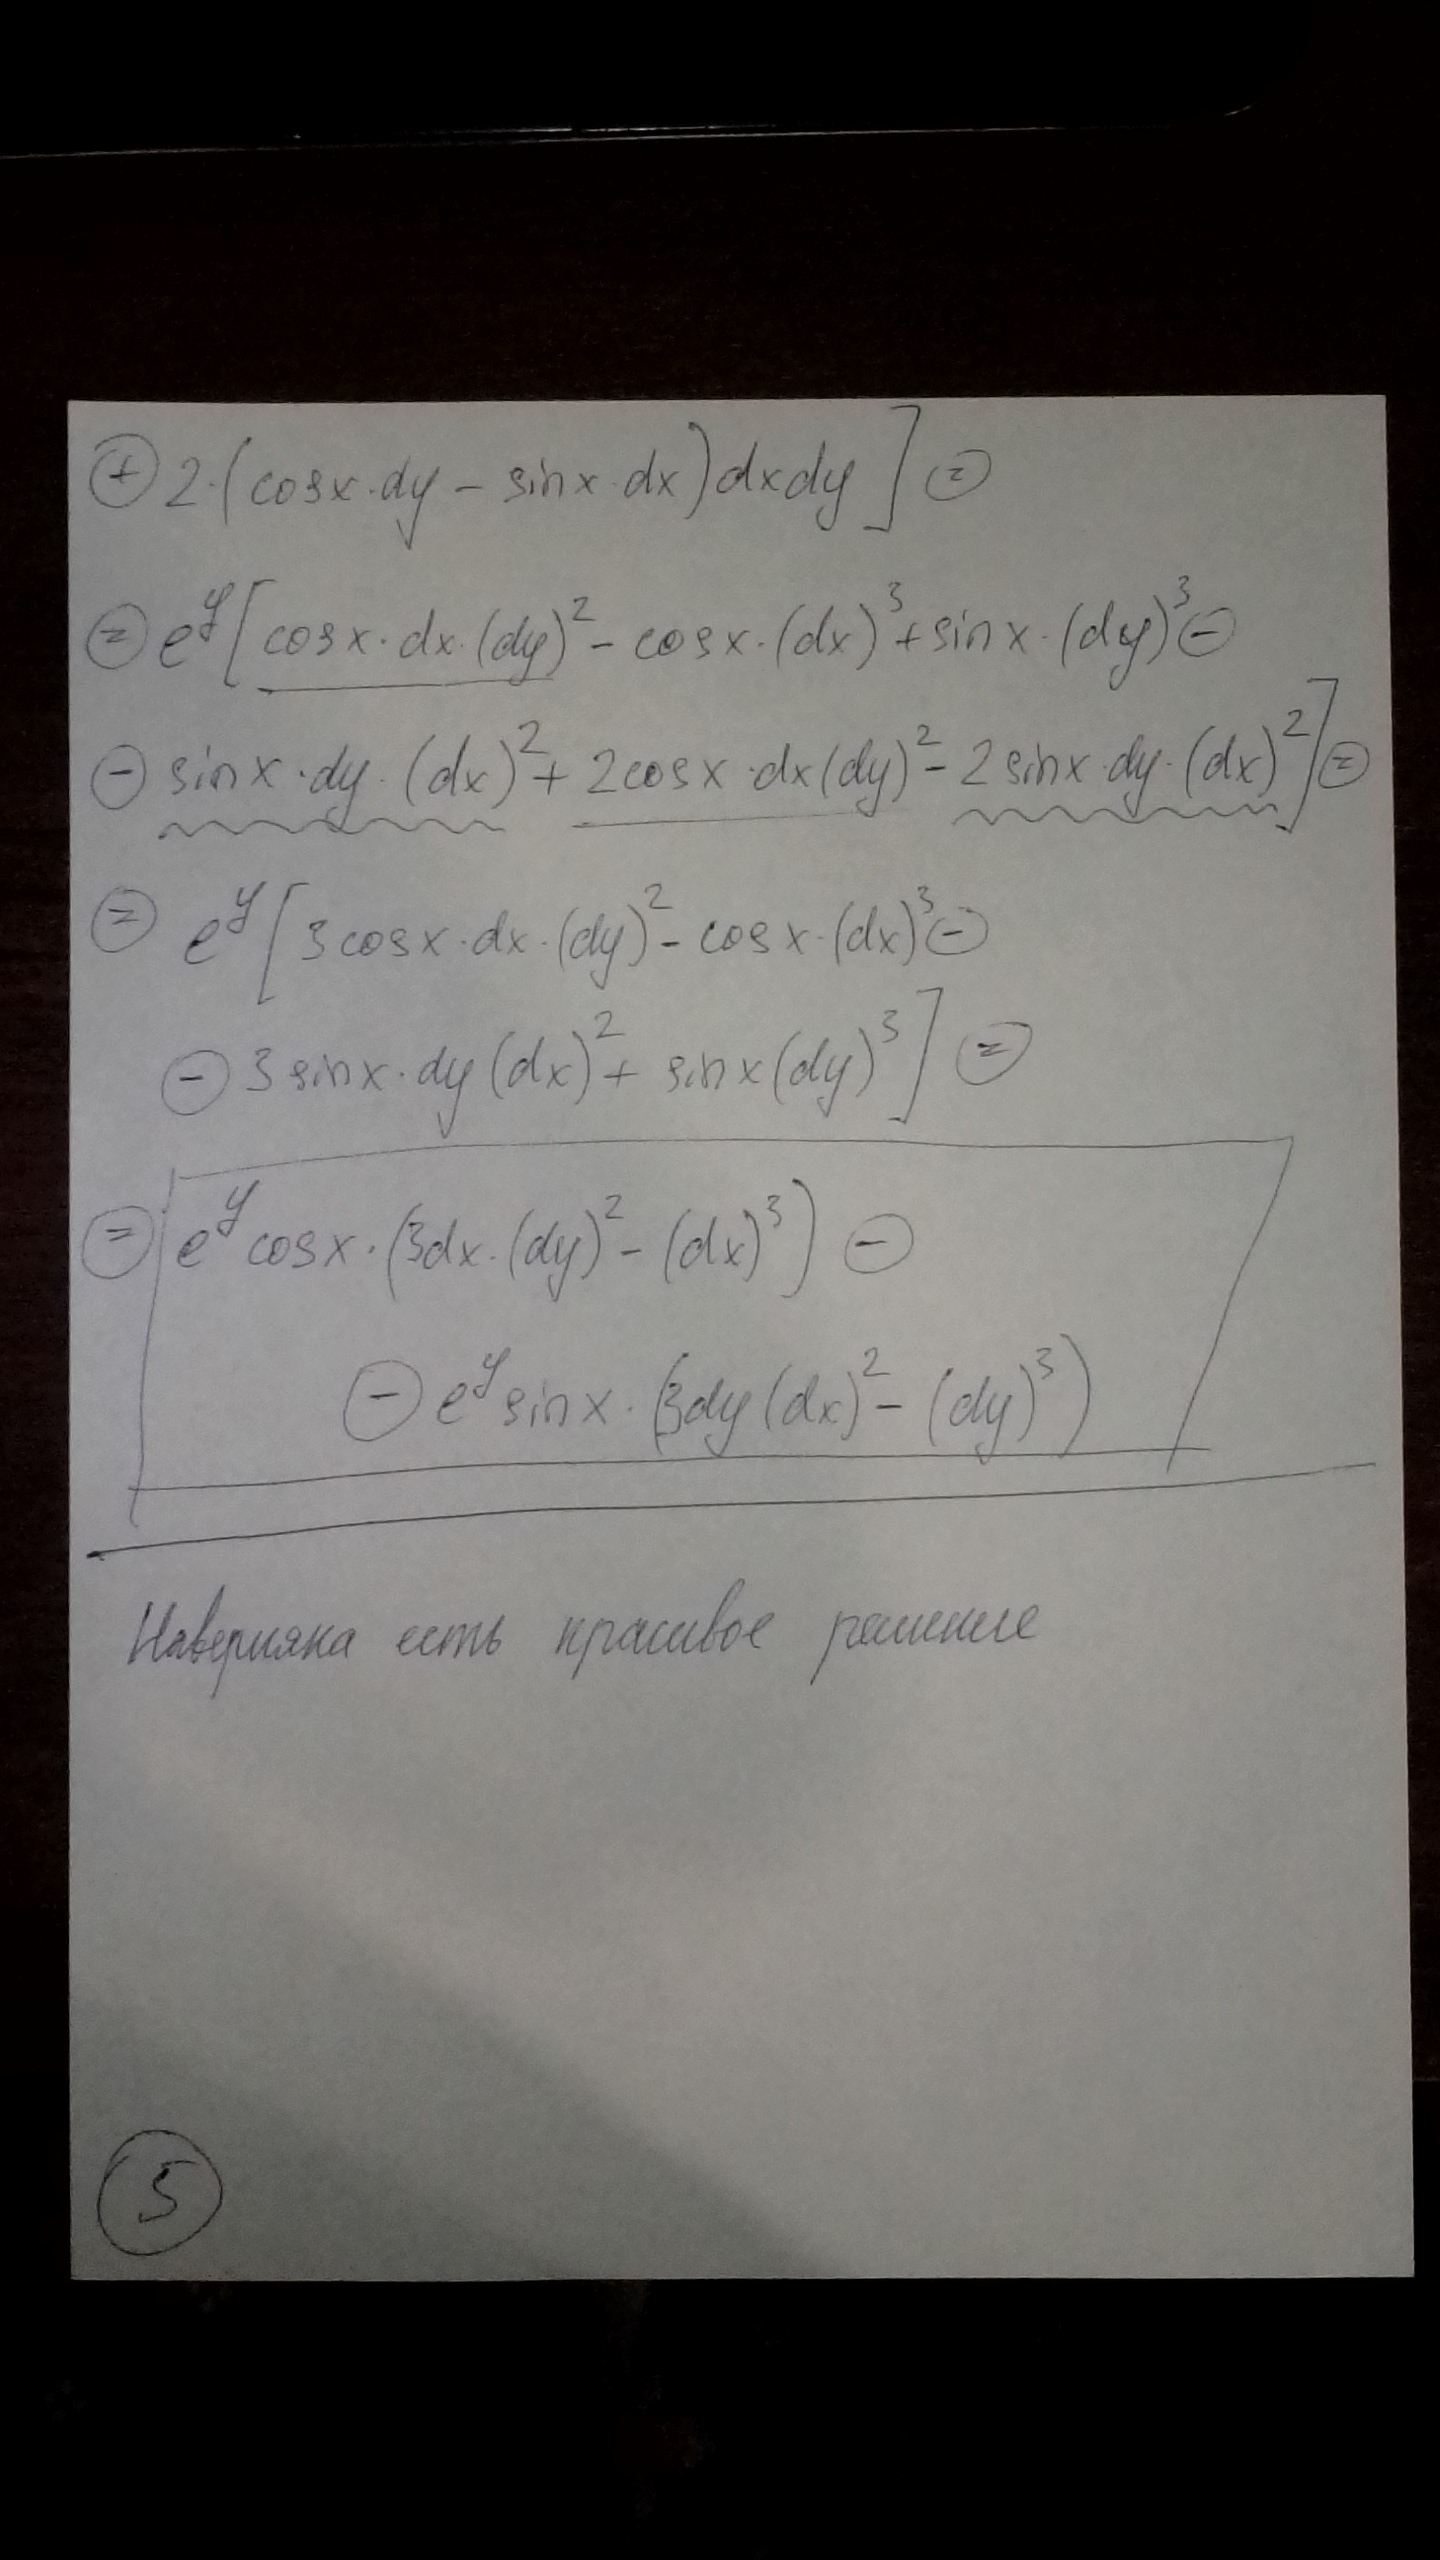 ⊕ 2·(cosx·dy - sinx·dx)dxdy] ⊜
⊜ e^y[cosx·dx·(dy)^2 - cosx·(dx)^3 + sinx·(dy)^3 ⊖
⊖ sinx·dy·(dx)^2 + 2cosx·dx(dy)^2 - 2sinx·dy·(dx)^2] ⊜
⊜ e^y[3cosx·dx·(dy)^2 - cosx·(dx)^3 ⊖
⊖ 3sinx·dy(dx)^2 + sinx(dy)^3] ⊜
⊜ e^y cosx·(3dx·(dy)^2 - (dx)^3) ⊖
⊖ e^y sinx·(3dy(dx)^2 - (dy)^3)
Наверняка есть красивое решение
5